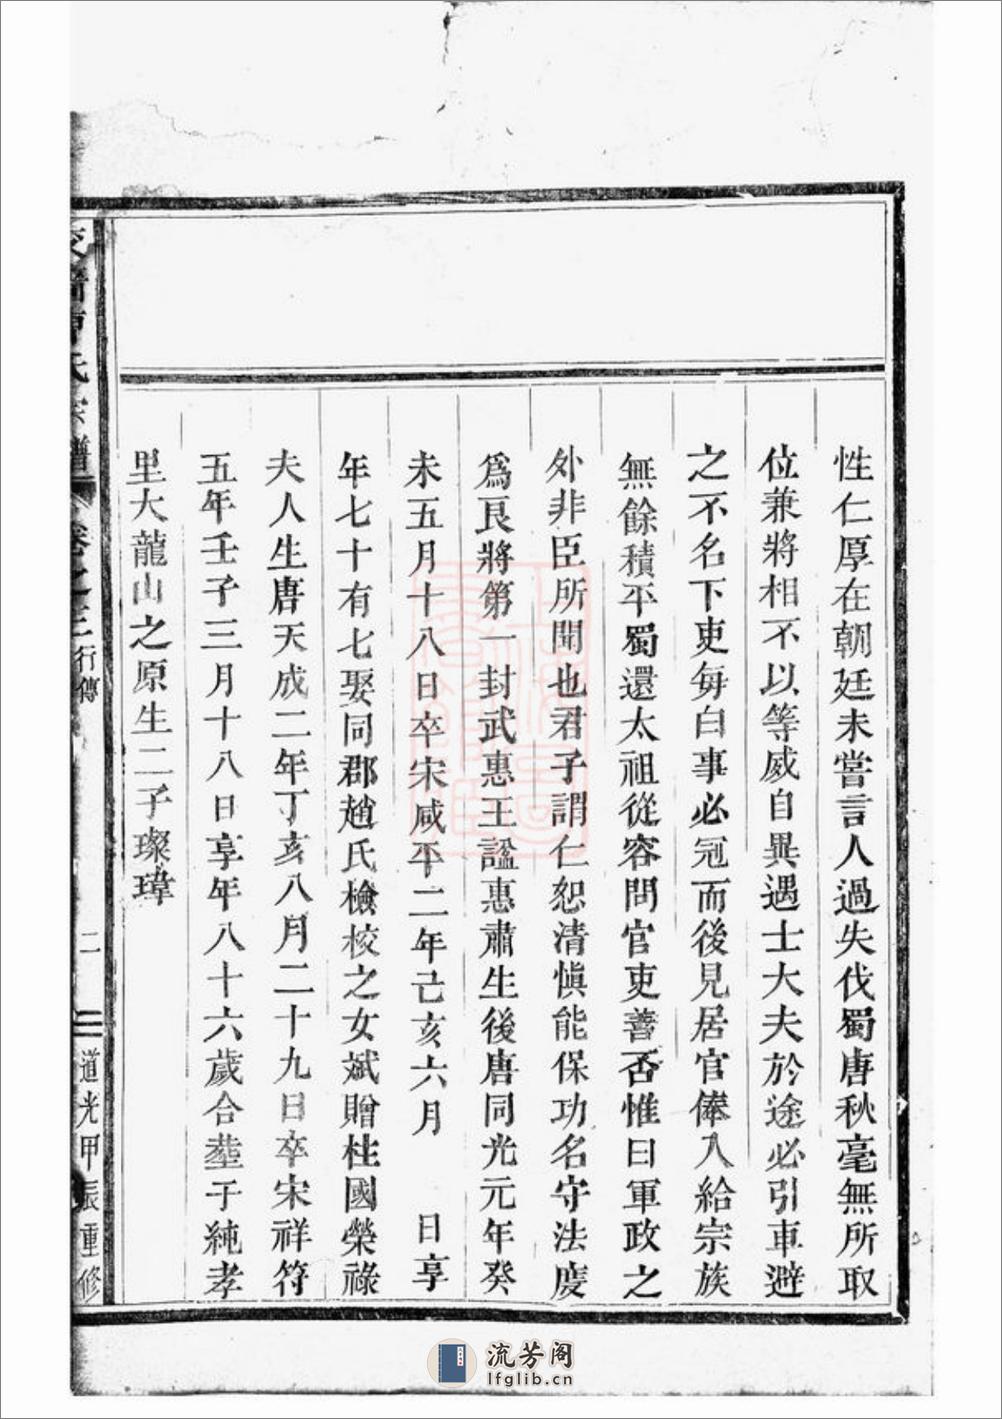 性仁厚在朝廷未嘗言人過失伐蜀唐秋毫無所取
位兼將相不以等威自異遇士大夫於途必引車避
之不名下吏每白事必冠而後見居官俸入給宗族
無餘積平蜀還太祖從容問官吏善否惟曰軍政之
外非臣所聞也君子謂仁恕清愼能保功名守法度
爲良將第一封武惠王諡惠肅生後唐同光元年癸
未五月十八日卒宋咸平二年己亥六月　日享
年七十有七娶同郡趙氏檢校之女斌贈柱國榮祿
夫人生唐天成二年丁亥八月二十九日卒宋祥符
五年壬子三月十八日享年八十六歲合塟于純孝
里大龍山之原生二子璨瑋
氏宗譜 卷之三 行傳 二 道光甲辰重修
流芳阁
lfglib.cn